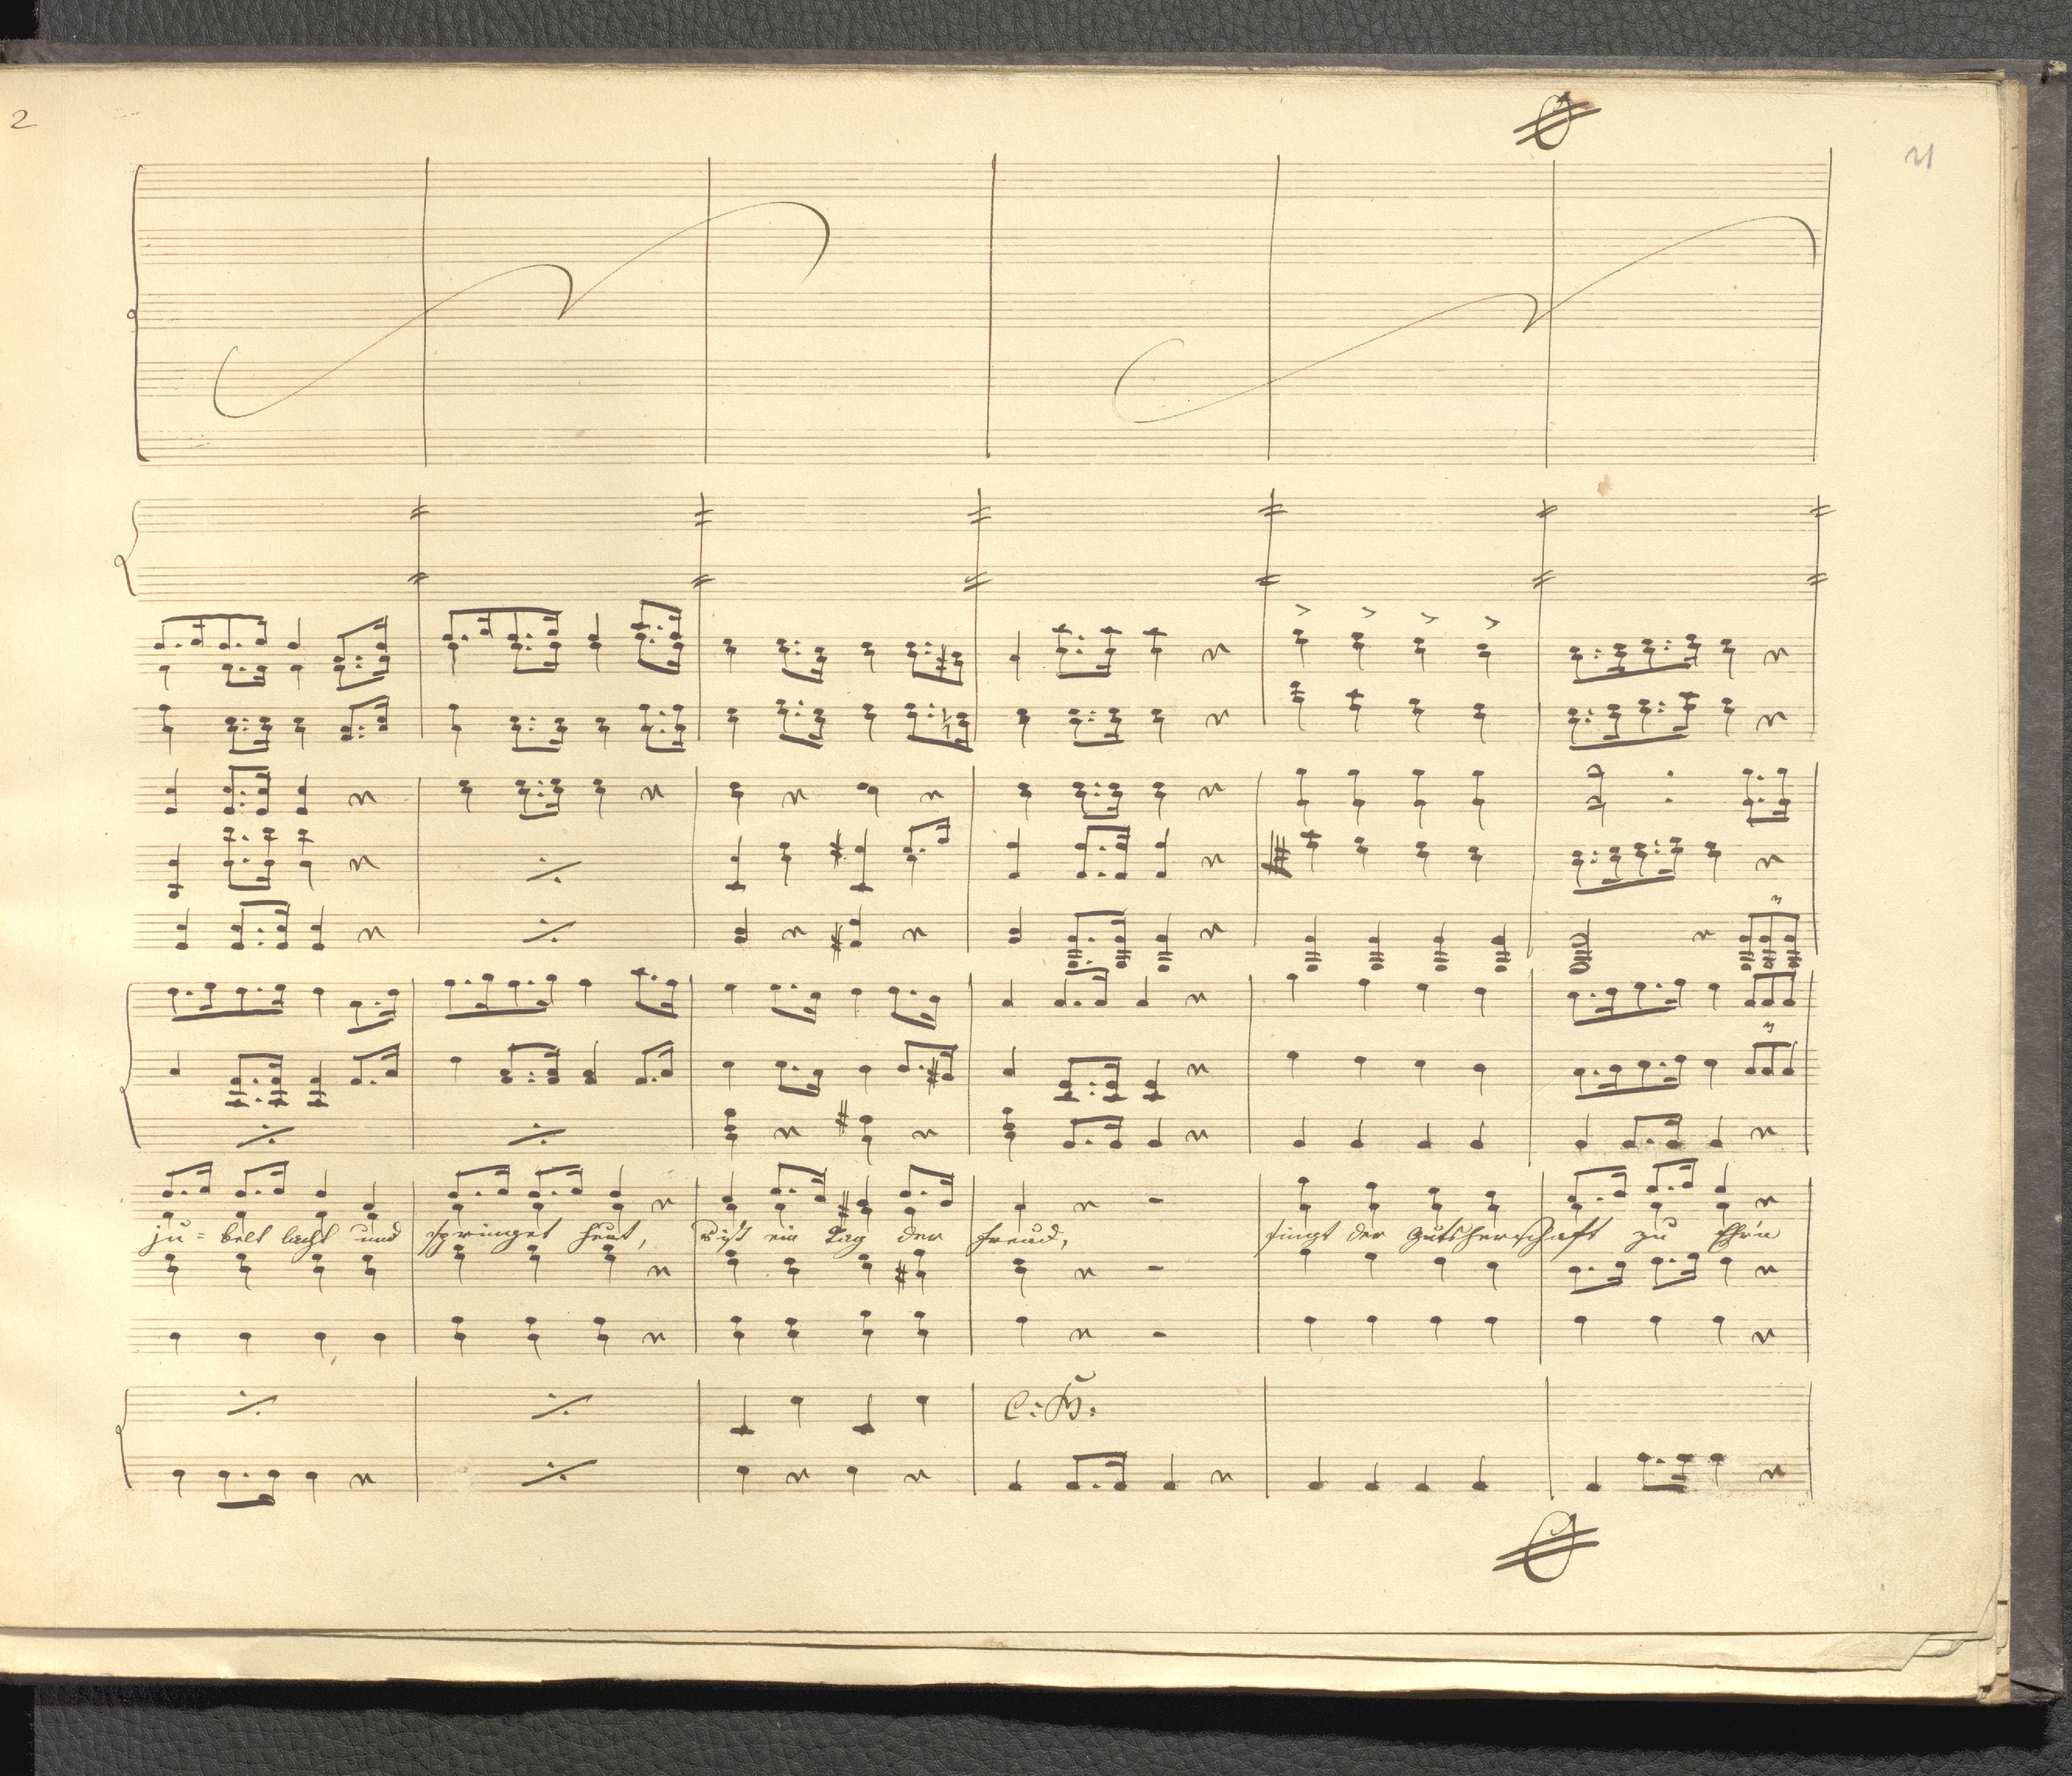 2
21
ju = belt lacht und springet heut, 's ist ein Tag der Freud, singt der Gutsherrschaft zu Ehr'n
C: B: